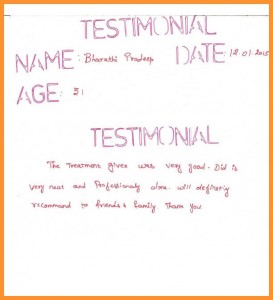 TESTIMONIAL
NAME: Bharathi Pradeep DATE: 12.01.2015
AGE: 31
TESTIMONIAL
The Treatment given was very good. Did it
very neat and Professionaly done. will definitly
recommand to friends & family. Thank you